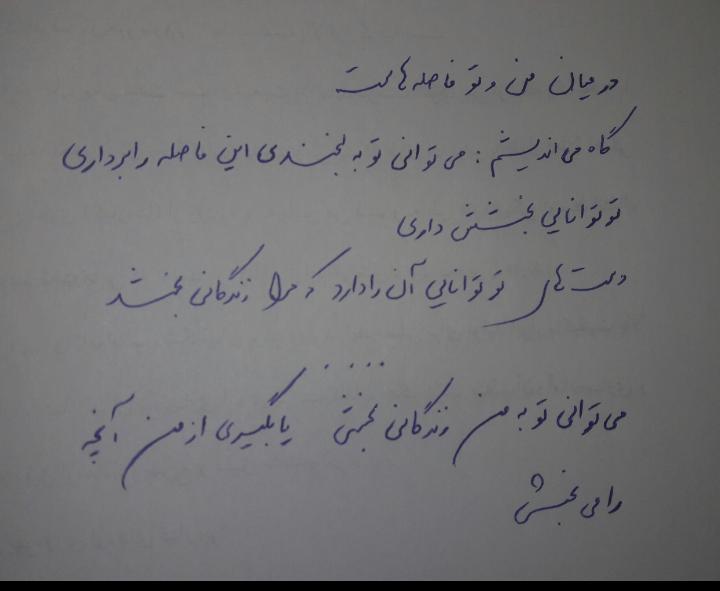 در میان من و تو فاصله هاست
گاه می اندیشم : می توانی تو به لبخندی این فاصله را برداری
تو توانایی بخشش داری
دست های تو توانایی آن را دارد که مرا زندگانی بخشد
. . . .
می توانی تو به من زندگانی بخشی یا بگیری از من آنچه
را می بخشی